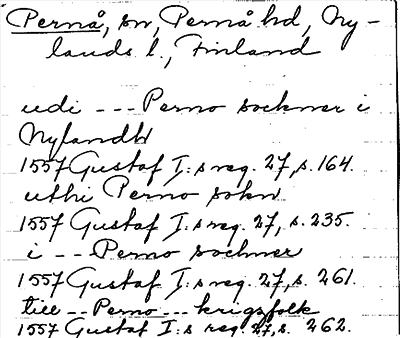 Pernå, sn, Pernå hd, Ny-
lands l., Finland
udi --- Perno sockner i
Nylandh
1557 Gustaf I:s reg. 27, s. 164.
uthi Perno sokn
1557 Gustaf I:s reg. 27, s. 235.
i --- Perno sochner
1557 Gustaf I:s reg. 27, s. 261.
till -- Perno --- krigsfolk
1557 Gustaf I:s reg. 27, s. 262.